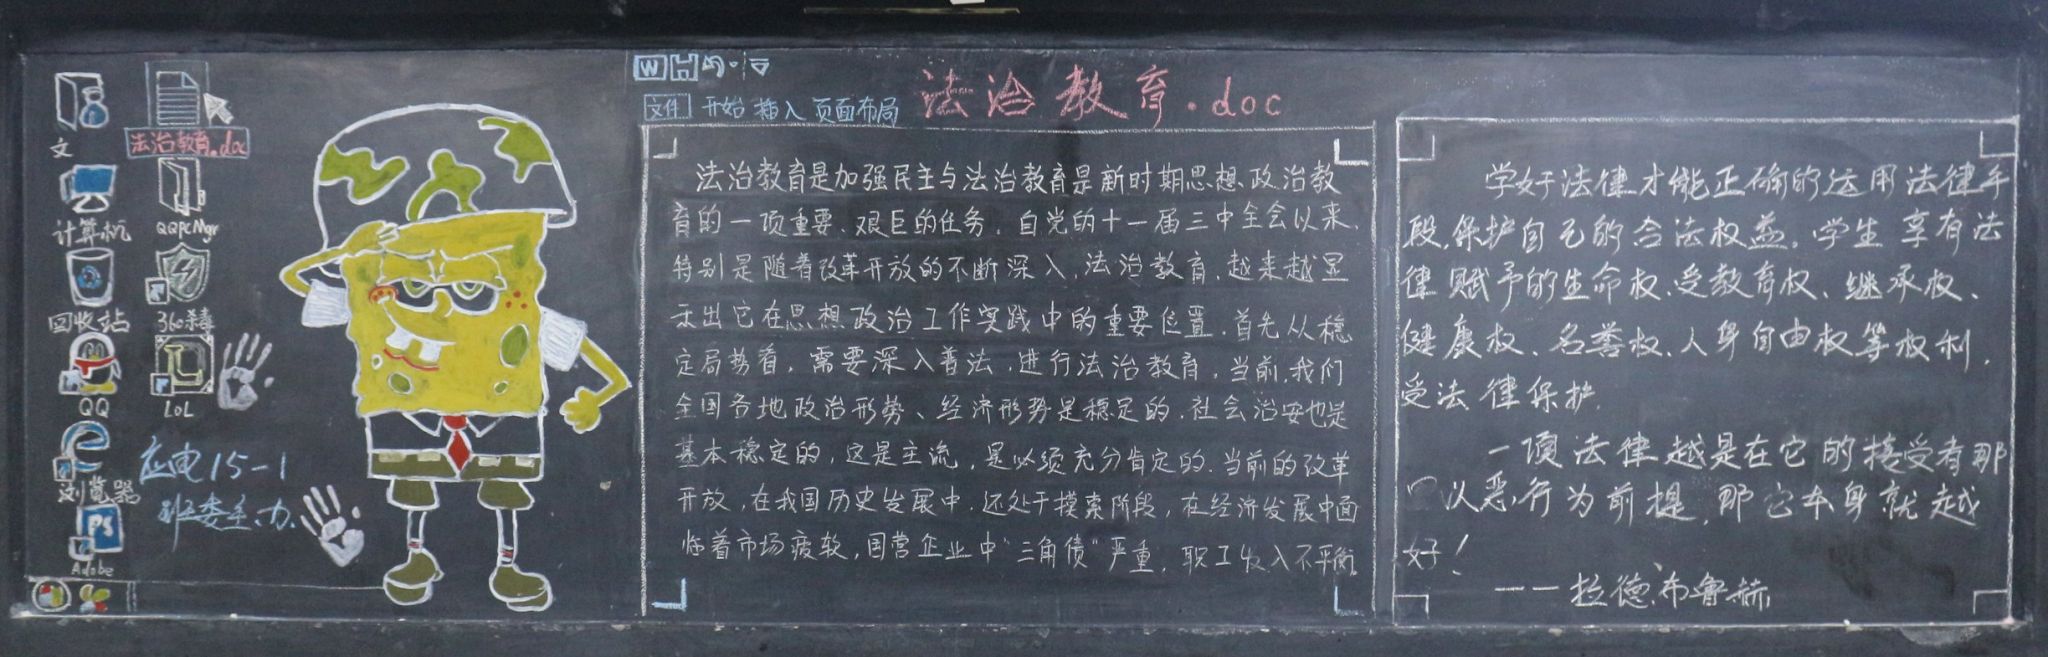 文
法治教育.doc
计算机
QQpcMgr
回收站
360杀毒
QQ
LOL
浏览器
Ps
Adobe
应电15-1
班委主办
W
文件 开始 插入 页面布局
法治教育.doc
法治教育是加强民主与法治教育是新时期思想政治教
育的一项重要、艰巨的任务。自党的十一届三中全会以来、
特别是随着改革开放的不断深入,法治教育,越来越显
示出它在思想政治工作实践中的重要位置。首先从稳
定局势看,需要深入普法,进行法治教育,当前,我们
全国各地政治形势、经济形势是稳定的,社会治安也是
基本稳定的,这是主流,是必须充分肯定的.当前的改革
开放,在我国历史发展中,还处于摸索阶段,在经济发展中面
临着市场疲软,国营企业中“三角债”严重,职工收入不平衡,
学好法律才能正确的运用法律手
段,保护自己的合法权益。学生享有法
律赋予的生命权、受教育权、继承权、
健康权、名誉权、人身自由权等权利,
受法律保护.
一项法律越是在它的接受者那
以恶行为前提,那它本身就越
好!
——拉德布鲁赫